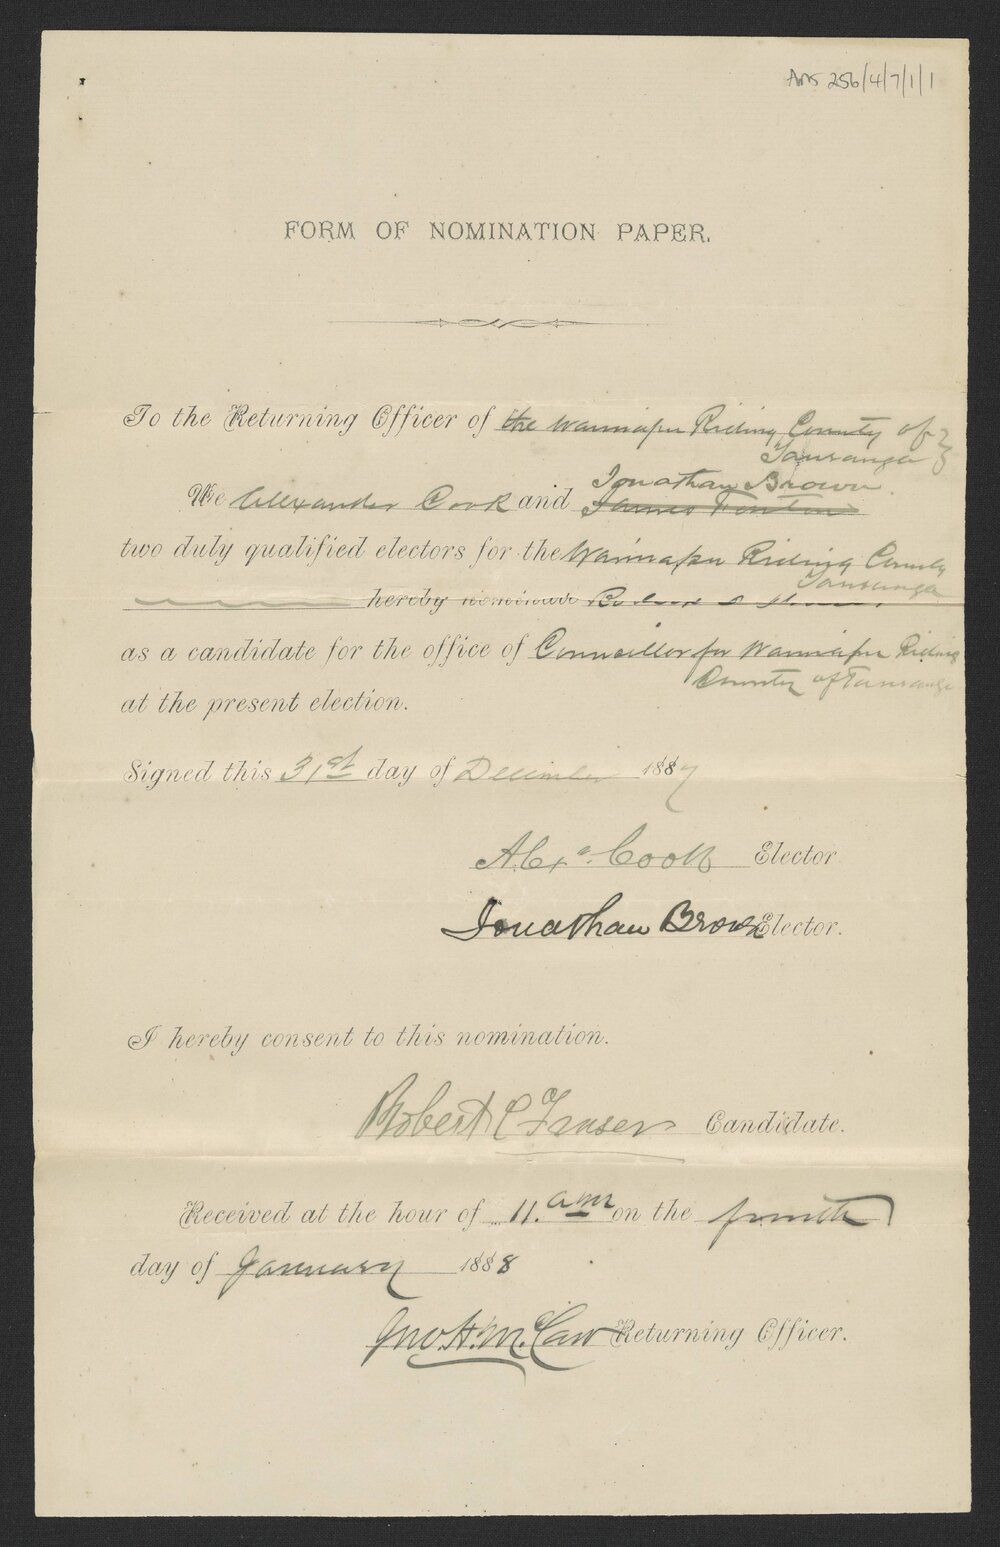 Ams 256/4/7/1/1
FORM OF NOMINATION PAPER.
To the Returning Officer of the Waimapu Riding County of
Tauranga
Jonathan Brown
We Alexander Cook and James
two duly qualified electors for the Waimapu Riding County
Tauranga
hereby nominate
as a candidate for the office of Councillor for Waimapu Riding
County of Tauranga
at the present election.
Signed this 31st day of December 1887
Alexr. Cook Elector
Jonathan Brown Elector.
I hereby consent to this nomination.
Robert C Fraser Candidate.
Received at the hour of 11. am on the fourth
day of January 1888
Jno. H. M. Caw Returning Officer.